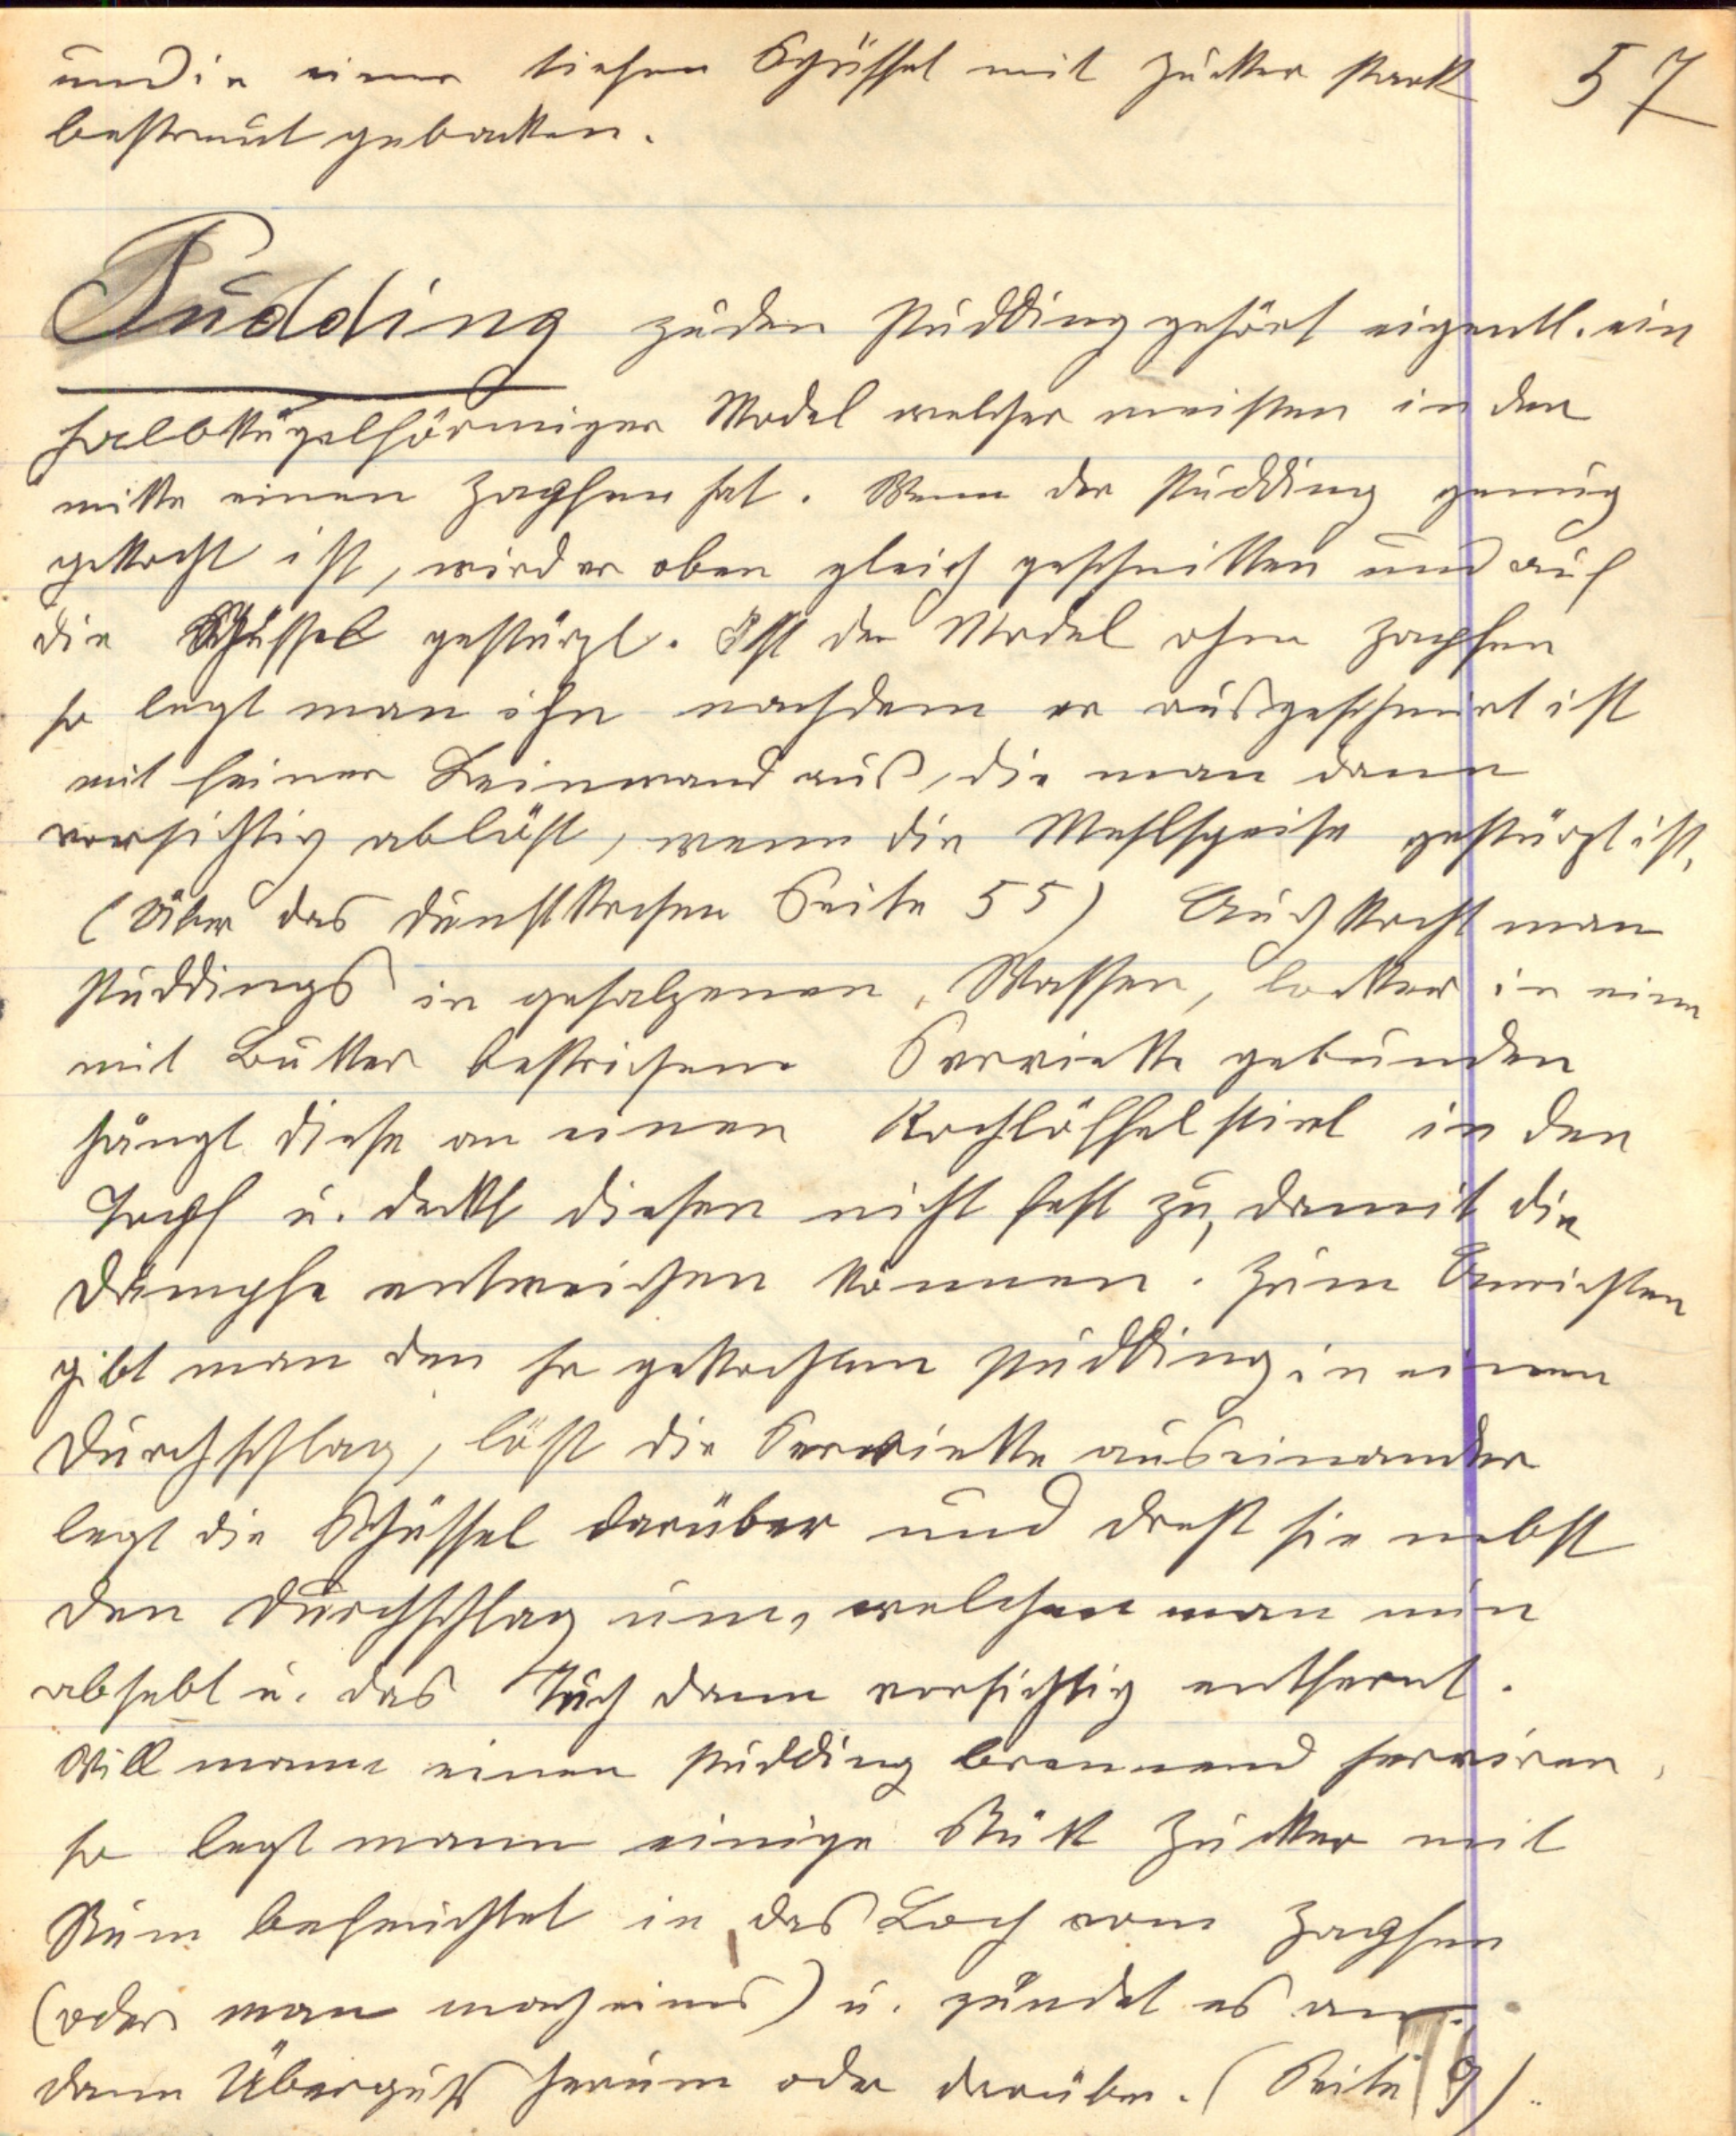 und in einer tiefen Schüssel mit Zucker stark 57
bestreut gebacken.
Pudding zu den Pudding gehört eigentl. ein
halbkugelförmiger Model welcher meisten in der
mitte einen Zapfen hat. Wenn der Pudding genug
gekocht ist, wird er oben gleich geschnitten und auf
die Schüssel gestürzt. Ist der Model ohne Zapfen
so legt man ihn nachdem er ausgeschmiert ist
mit feiner Leinwand aus, die man dann
vorsichtig ablöst, wenn die Mehlspeise gestürzt ist.
(Über das Dunstkochen Seite 55) Auch kocht man
Puddings in gesalzenen Wasser, locker in eine
mit Butter bestrichene Serviette gebunden
hängt diese an einen Kochlöffelstiel in den
Topf u. deckt diesen nicht fest zu, damit die
Dämpfe entweichen können. Zum Anrichten
gibt man den so gekochten Pudding in einen
Durchschlag, löst die Serviette auseinander
legt die Schüssel darüber und dreht sie nebst
den Durchschlag um, welchen man nun
abhebt u. das Tuch dann vorsichtig entfernt.
Will mann einen Pudding brennend serviren,
so legt mann einige Stük Zucker mit
Rum befeuchtet in das Loch vom Zapfen
(oder man mach eines) u. zündet es an.
dann Überguß herum oder darüber. (Seite 9).